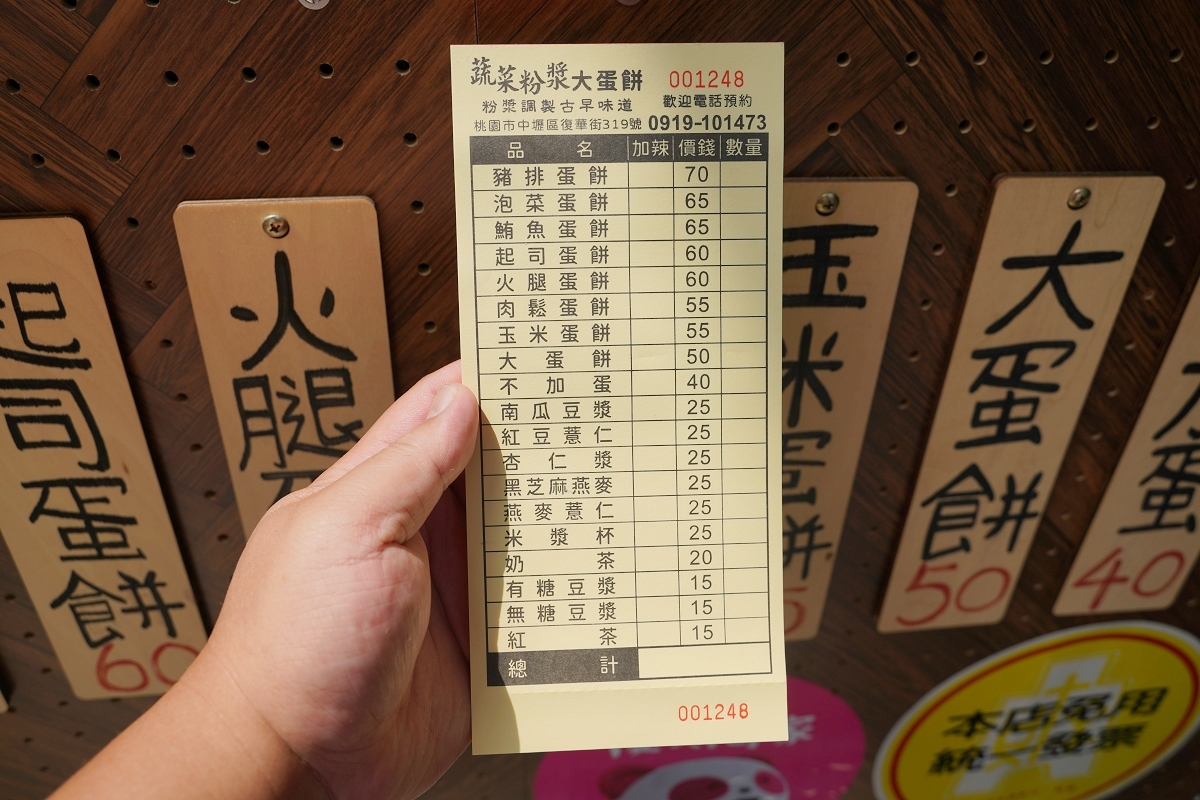 蔬菜粉漿大蛋餅 001248
粉漿調製古早味道 歡迎電話預約
桃園市中壢區復華街319號 0919-101473
品名 加辣 價錢 數量
豬排蛋餅 70
泡菜蛋餅 65
鮪魚蛋餅 65
起司蛋餅 60
火腿蛋餅 60
肉鬆蛋餅 55
玉米蛋餅 55
大蛋餅 50
不加蛋 40
南瓜豆漿 25
紅豆薏仁 25
杏仁漿 25
黑芝麻燕麥 25
燕麥薏仁 25
米漿杯 25
奶茶 20
有糖豆漿 15
無糖豆漿 15
紅茶 15
總計
001248
起司蛋餅
60
火腿
玉米蛋餅
5
大蛋餅
50
蛋
40
本店免用
統一發票